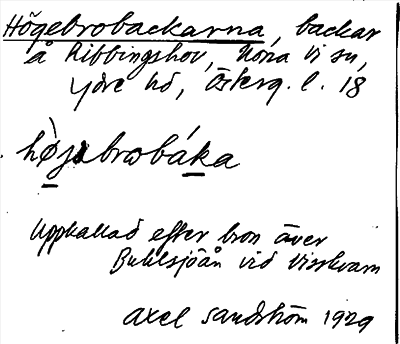 Högebrobackarna, backar
å Ribbingshov, Norra Vi sn,
Ydre hd, Österg. l. 18
hø̀jabrωbáka
Uppkallad efter bron över
Bulsjöån vid Visskvarn
Axel Sandström 1929